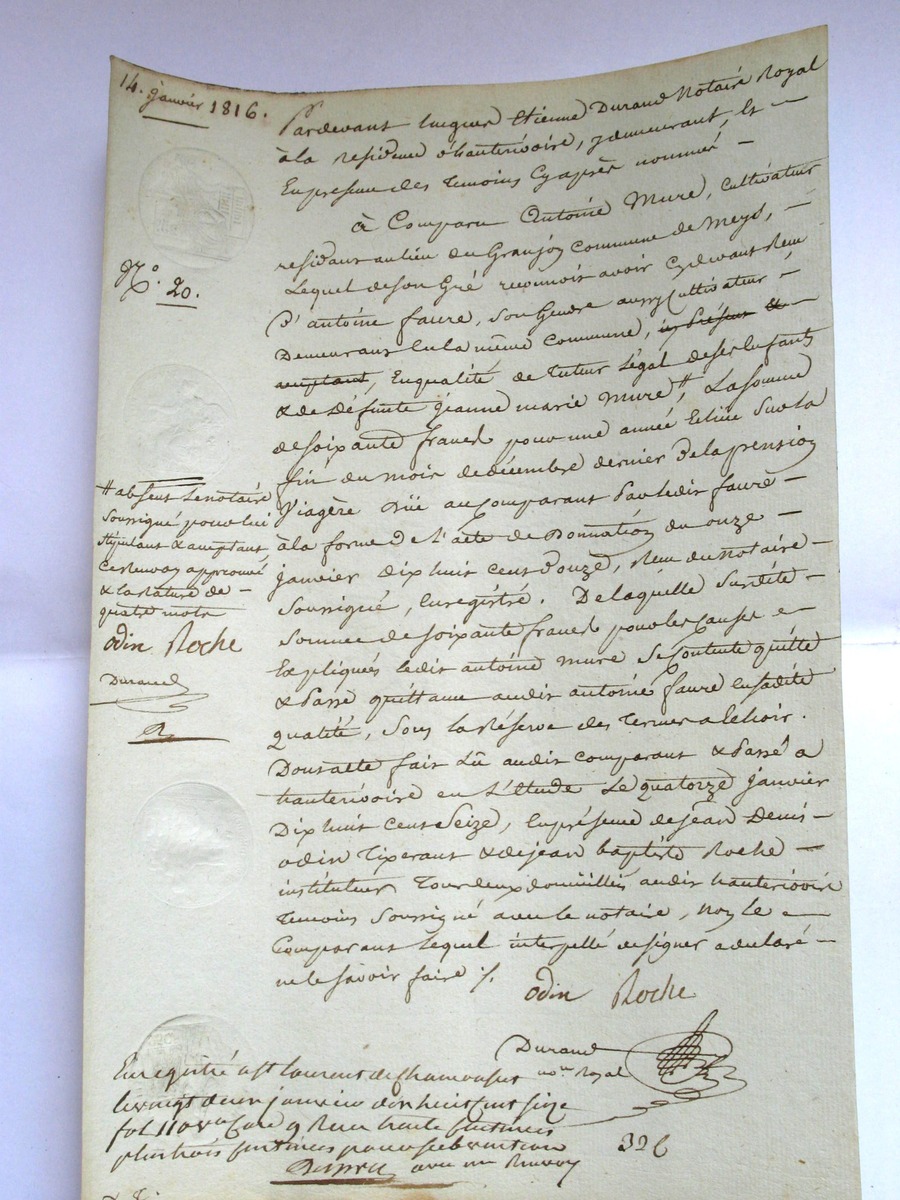 14. janvier 1816.
Pardevant lucquer Etienne Durand Notaire Royal
à la residence d'hauterivoire, y demeurant, Et
En presence des Temoins Cyaprès nommés
N.o 20.
à Comparu Antoine Mure, Cultivateur
residant au lieu du Granjon Commune de Meys,
Lequel de son Gré reconnoit avoir Cydevant Reçu
D'antoine faure, son Gendre aussy Cultivateur
Demeurant En la même Commune, icy Présent &
acceptant, En qualité de Tuteur Légal de ses Enfants
& de Défunte jeanne marie Mure #, La somme
de soixante francs pour une année Echüe Sur la
fin du mois de décembre dernier De la pension
Viagère Düe au Comparant Par ledit faure
à la forme De l'acte de Donnation du onze
janvier dix huit cent Douze, Reçu du Notaire
Soussigné, Enregistré. De laquelle Susdite
Somme de soixante francs pour les causes
Expliquées ledit antoine mure se Contente quitte
& Passe quittance audit antoine faure En sadite
qualité, Sous la Réserve des Termes a Echoir.
Dont acte fait Lû audit comparant & Passé a
hauterivoire en L'étude Le quatorze janvier
Dix huit Cent Seize, En présence de jean Denis
odin Tixerant & de jean baptiste Roche
instituteur Tous deux domiciliés audit hauterivoire
Temoins Soussigné avec le notaire, Non le
Comparant Lequel interpellé de signer a declaré
ne le savoir faire ./.
# absent Le notaire
Soussigné pour lui
Stipulant & acceptant
Ce Renvoy approuvé
& la Rature de
quatre mots
odin Roche
Durand
R
odin Roche
Durand
no.re Royal
Enregistré a St Laurent de Chamousset
le vingt deux janvier dix huit cent Seize
fol 110 v.o Case 9 Reçu
plus trois centimes pour subvention
avec un Renvoy